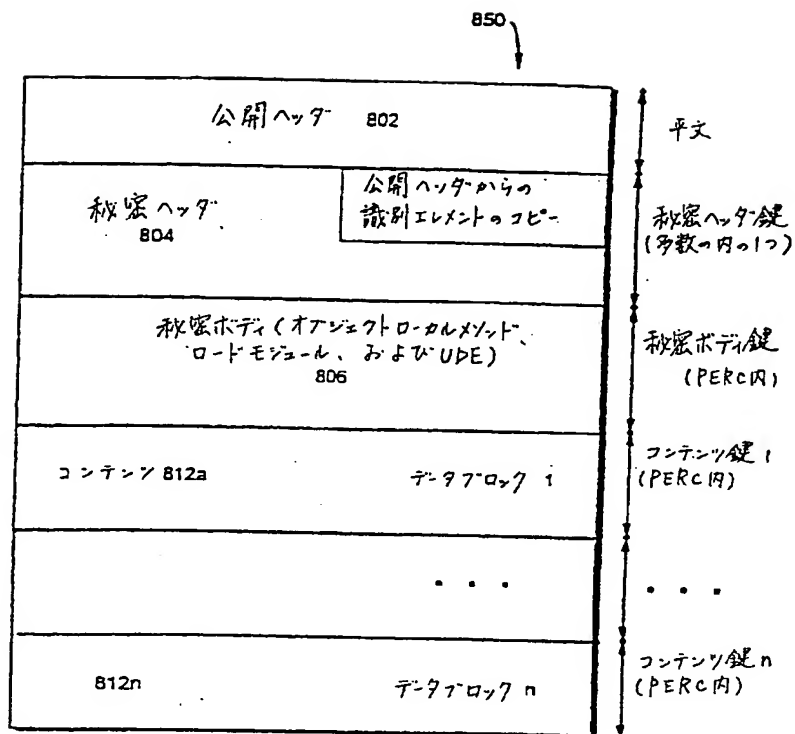 850
公開ヘッダ 802
平文
公開ヘッダからの
識別エレメントのコピー
秘密ヘッダ
804
秘密ヘッダ鍵
(多数の内の1つ)
秘密ボディ(オブジェクトローカルメソッド、
ロードモジュール、およびUDE)
806
秘密ボディ鍵
(PERC内)
コンテンツ 812a データブロック 1
コンテンツ鍵 1
(PERC内)
. . .
. . .
812n データブロック n
コンテンツ鍵 n
(PERC内)